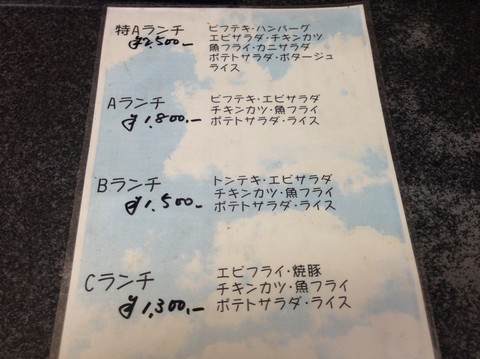 特Aランチ
¥2,500-
ビフテキ・ハンバーグ
エビサラダ・チキンカツ
魚フライ・カニサラダ
ポテトサラダ・ポタージュ
ライス
Aランチ
¥1,800-
ビフテキ・エビサラダ
チキンカツ・魚フライ
ポテトサラダ・ライス
Bランチ
¥1,500-
トンテキ・エビサラダ
チキンカツ・魚フライ
ポテトサラダ・ライス
Cランチ
¥1,300,-
エビフライ・焼豚
チキンカツ・魚フライ
ポテトサラダ・ライス